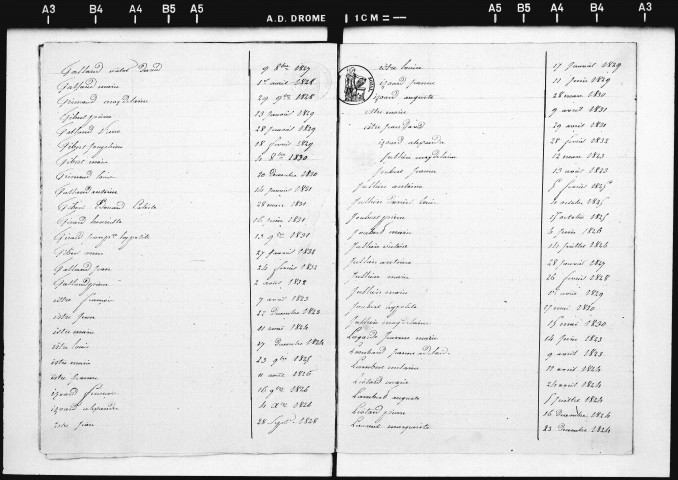 A3 B4 A4 B5 A5 A.D. DROME 1CM= A5 B5 A4 B4 A3
Galland David 9 8bre 1827
Galland marie 1er avril 1828
Grimaud magdelaine 29 9bre 1828
Gibert pierre 13 janvier 1829
Galland 28 janvier 1829
Gibert joséphine 18 février 1829
Gibert marie 4 8bre 1830
Grimaud 20 Décembre 1830
Galland antoine 14 janvier 1831
Gibert 28 mars 1831
Girard henriette 1831
Girard hypolite 13 9bre 1831
Gibert 27 janvier 1832
Galland jean 24 février 1832
Galland pierre 2 août 1832
istre françois 7 avril 1823
istre jean 22 Décembre 1823
istre marie 11 mai 1824
istre louis 27 Décembre 1824
istre marie 23 9bre 1825
istre jeanne 11 août 1826
izoard 16 9bre 1826
izoard alexandre 4 Xbre 1826
istre jean 28 Septbre 1828
istre louise 17 janvier 1829
izoard jeanne 11 juin 1829
izoard auguste 28 mars 1830
istre marie 9 avril 1831
istre jean David 29 avril 1831
izoard alexandre 28 février 1832
Jullien magdelaine 12 mars 1823
Joubert pierre 13 août 1823
Jullien antoine février 1825
Jullien Daniel louis octobre 1825
Joubert pierre 17 octobre 1825
Joubert marie 6 juin 1826
Jullien victoire 14 juillet 1826
Jullien antoine 28 janvier 1827
Jullien marie 26 février 1828
Jullien marie 1er août 1829
Joubert hypolite 17 mai 1830
Jullien magdelaine 15 mai 1830
Lagarde Jeanne marie 14 juin 1823
Lombard Jeanne 9 avril 1823
Lambert 11 avril 1824
Liotard marie 24 avril 1824
Lambert auguste 5 juillet 1824
Liotard pierre 16 Décembre 1824
marguerite 23 Décembre 1824